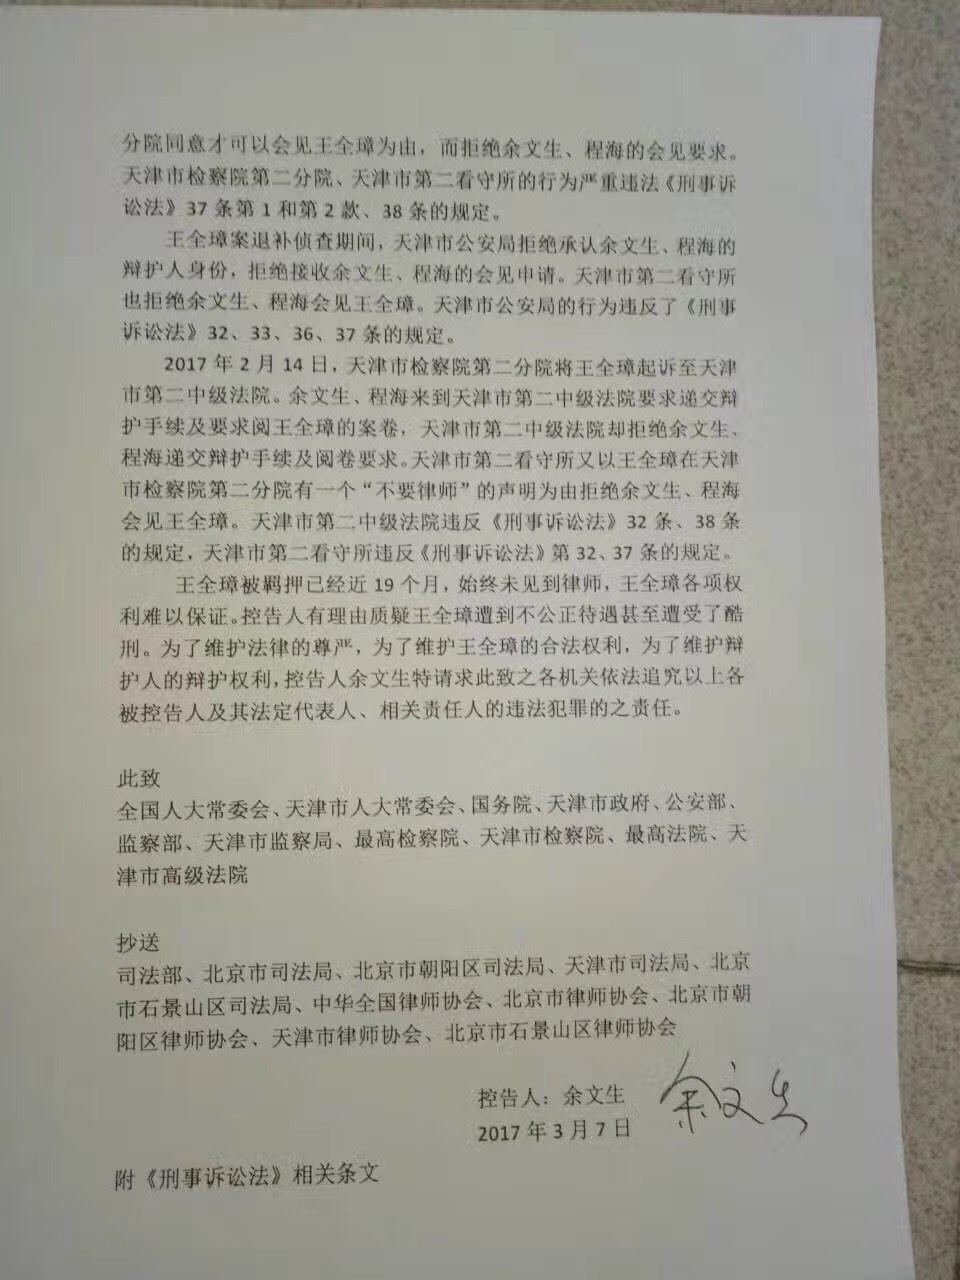 分院同意才可以会见王全璋为由，而拒绝余文生、程海的会见要求。
天津市检察院第二分院、天津市第二看守所的行为严重违法《刑事诉
讼法》37 条第 1 和第 2 款、38 条的规定。
王全璋案退补侦查期间，天津市公安局拒绝承认余文生、程海的
辩护人身份，拒绝接收余文生、程海的会见申请。天津市第二看守所
也拒绝余文生、程海会见王全璋。天津市公安局的行为违反了《刑事
诉讼法》32、33、36、37 条的规定。
2017 年 2 月 14 日，天津市检察院第二分院将王全璋起诉至天津
市第二中级法院。余文生、程海来到天津市第二中级法院要求递交辩
护手续及要求阅王全璋的案卷，天津市第二中级法院却拒绝余文生、
程海递交辩护手续及阅卷要求。天津市第二看守所又以王全璋在天津
市检察院第二分院有一个“不要律师”的声明为由拒绝余文生、程海
会见王全璋。天津市第二中级法院违反《刑事诉讼法》32 条、38 条
的规定，天津市第二看守所违反《刑事诉讼法》第 32、37 条的规定。
王全璋被羁押已经近 19 个月，始终未见到律师，王全璋各项权
利难以保证。控告人有理由质疑王全璋遭到不公正待遇甚至遭受了酷
刑。为了维护法律的尊严，为了维护王全璋的合法权利，为了维护辩
护人的辩护权利，控告人余文生特请求此致之各机关依法追究以上各
被控告人及其法定代表人、相关责任人的违法犯罪的之责任。
此致
全国人大常委会、天津市人大常委会、国务院、天津市政府、公安部、
监察部、天津市监察局、最高检察院、天津市检察院、最高法院、天
津市高级法院
抄送
司法部、北京市司法局、北京市朝阳区司法局、天津市司法局、北京
市石景山区司法局、中华全国律师协会、北京市律师协会、北京市朝
阳区律师协会、天津市律师协会、北京市石景山区律师协会
控告人：余文生 余文生
2017 年 3 月 7 日
附《刑事诉讼法》相关条文